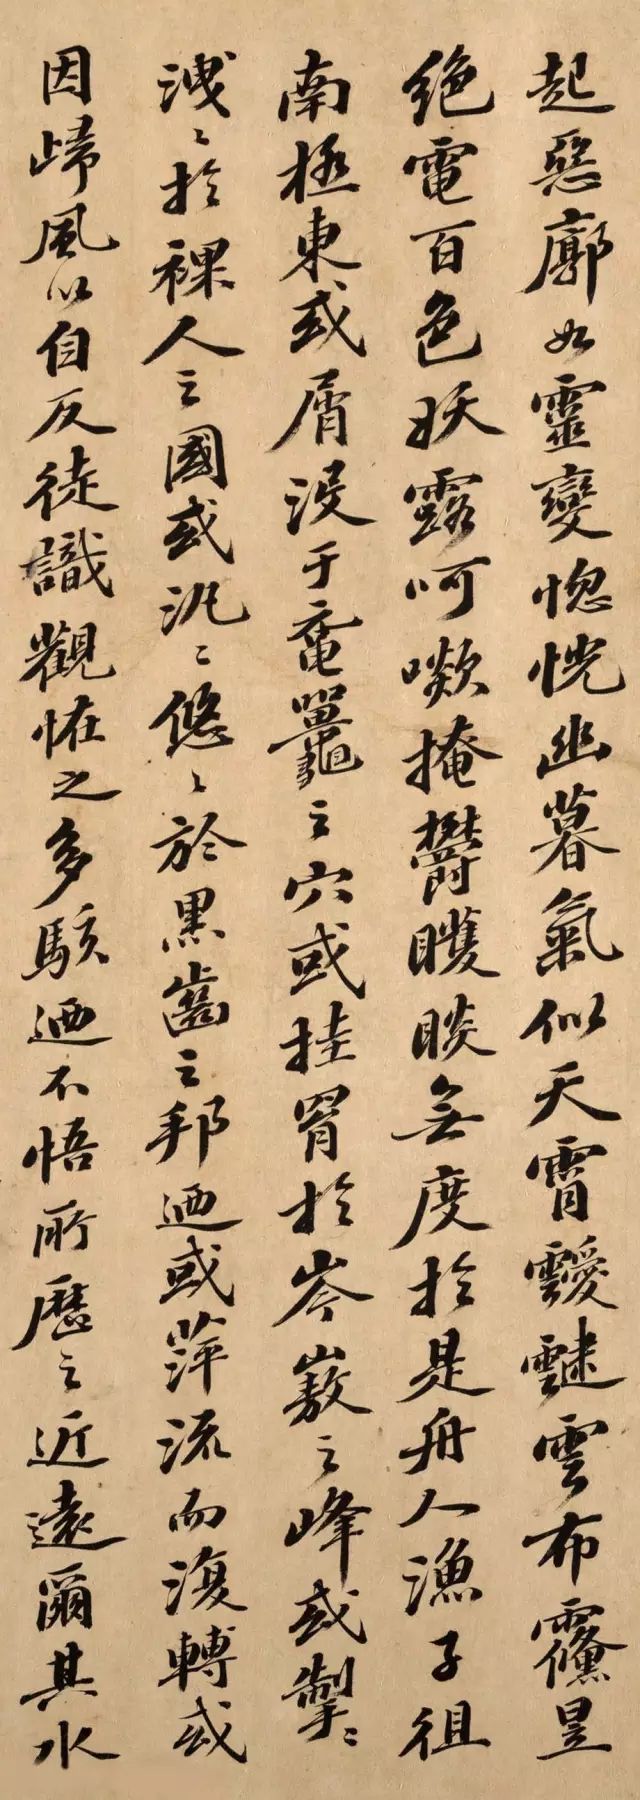 起惡廓如靈變惚恍幽暮氣似天霄靉靆雲布䨹昱
絕電百色妖露呵㗵掩鬱矆睒無度於是舟人漁子徂
南極東或屑沒于黿鼉之穴或挂罥於岑㟼之峰或掣〻
洩〻於裸人之國或汎〻悠〻於黑齒之邦迺或萍流而澓轉或
因歸風以自反徒識觀怪之多駭迺不悟所歷之近遠爾其水